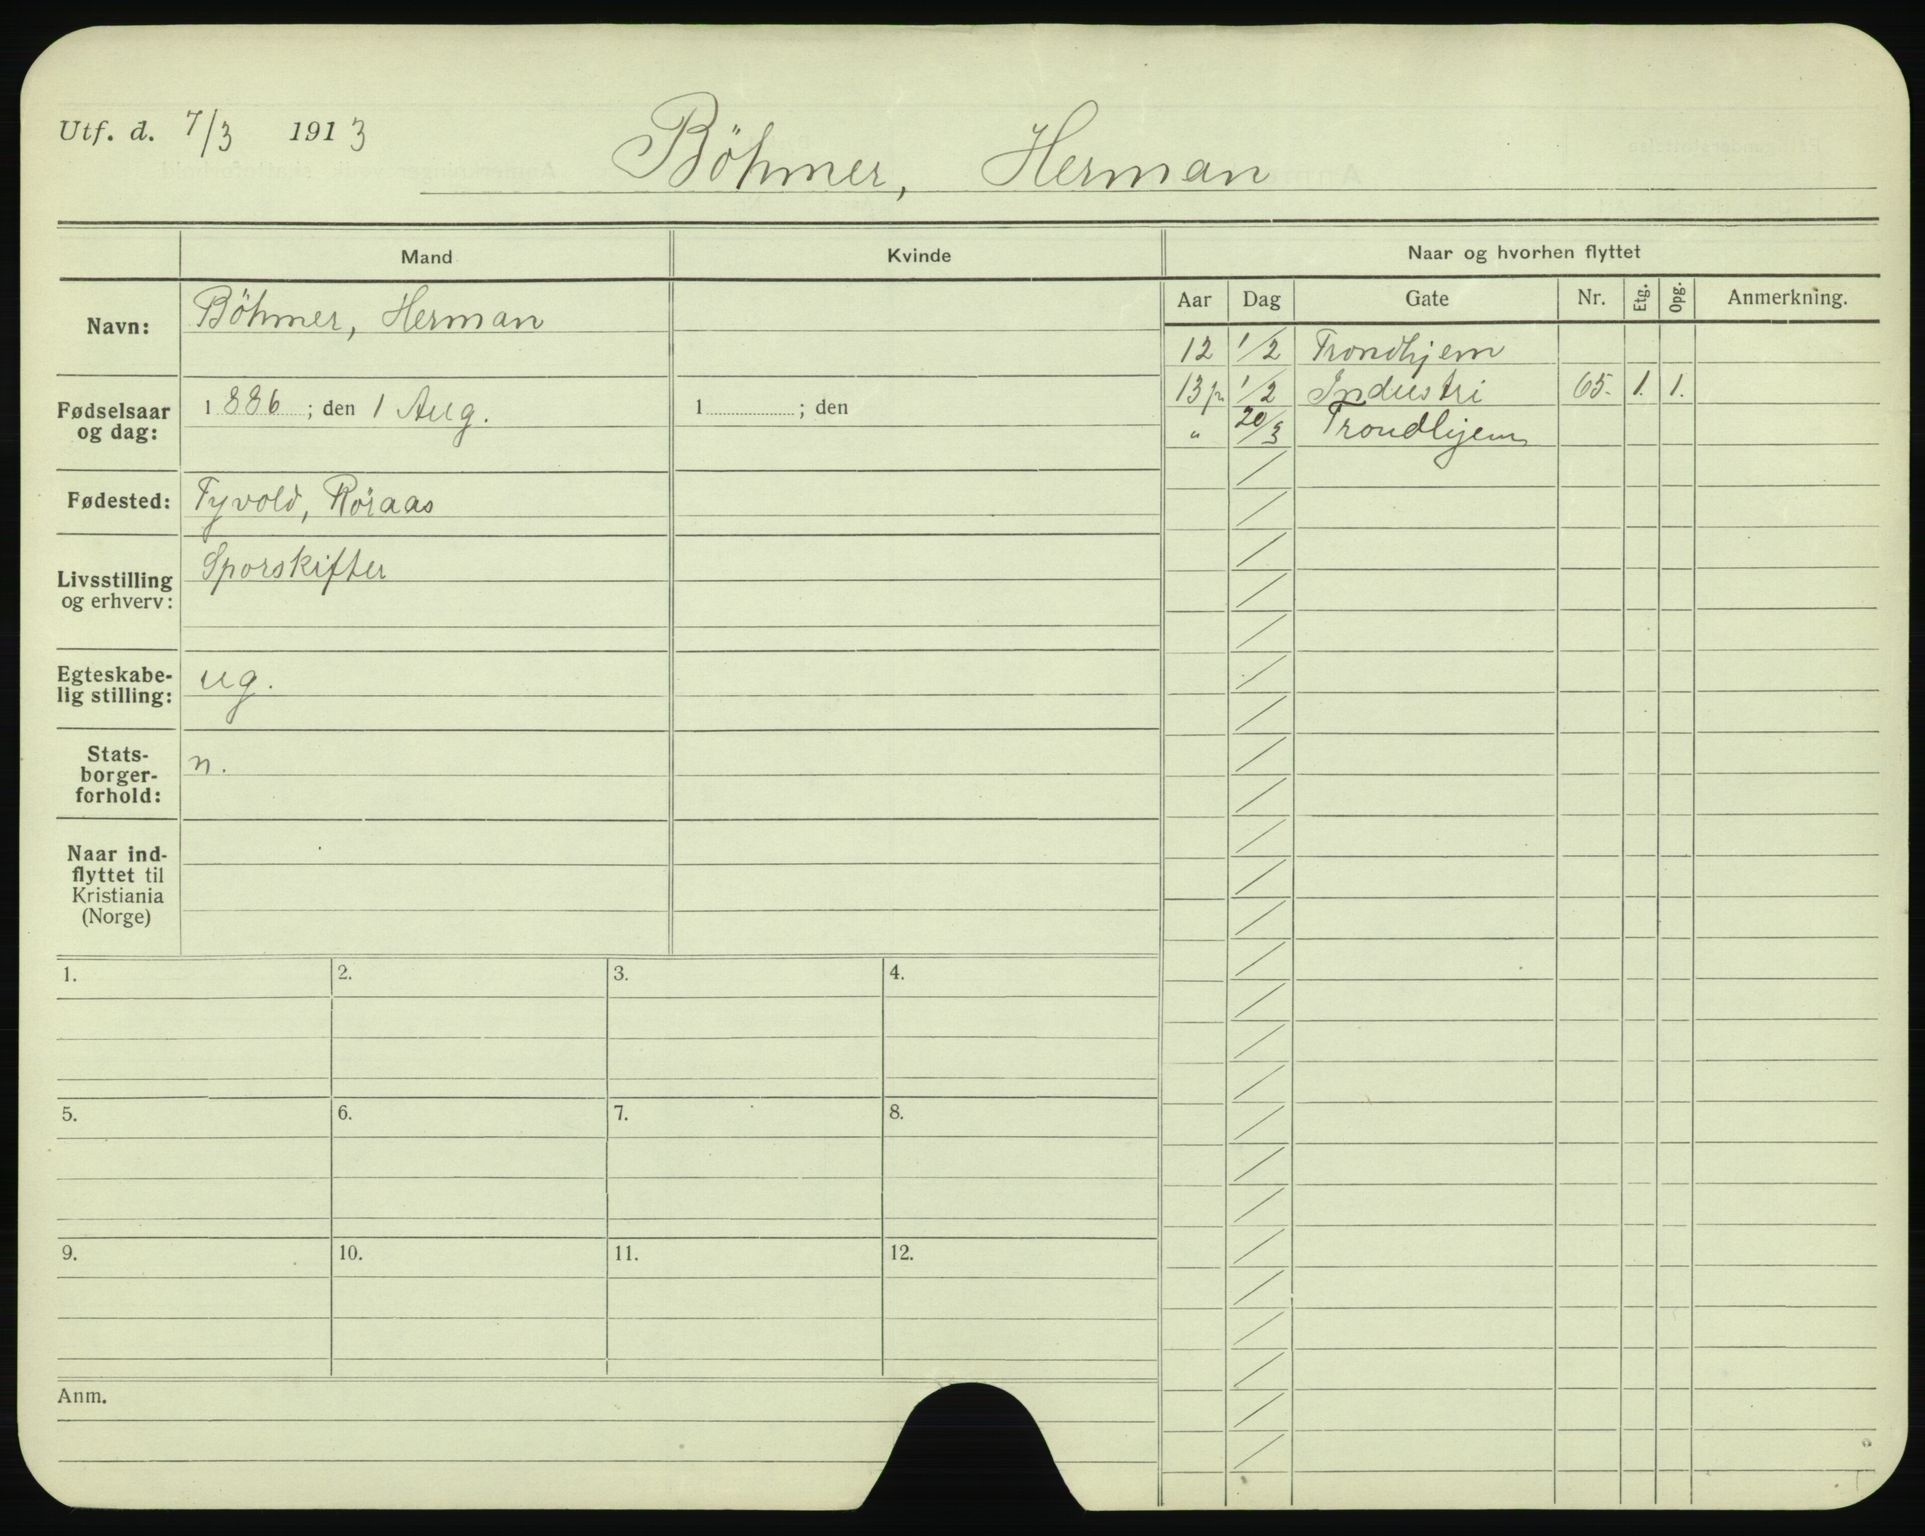 Utf. d. 7/3 1913
Böhmer, Herman
Mand Kvinde Naar og hvorhen flyttet
Aar Dag Gate Nr. Etg. Opg. Anmerkning.
Navn: Böhmer, Herman
Fødselsaar og dag: 1886; den 1 Aug. 1 ; den
Fødested: Tyvold, Röraas
Livsstilling og erhverv: Sporskifter
Egteskabe-
lig stilling: ug.
Stats-
borger-
forhold: n.
Naar ind-
flyttet til
Kristiania
(Norge)
12 1/2 Trondhjem
13 1/2 Industri 65. 1. 1.
" 20/3 Trondhjem
1. 2. 3. 4.
5. 6. 7. 8.
9. 10. 11. 12.
Anm.